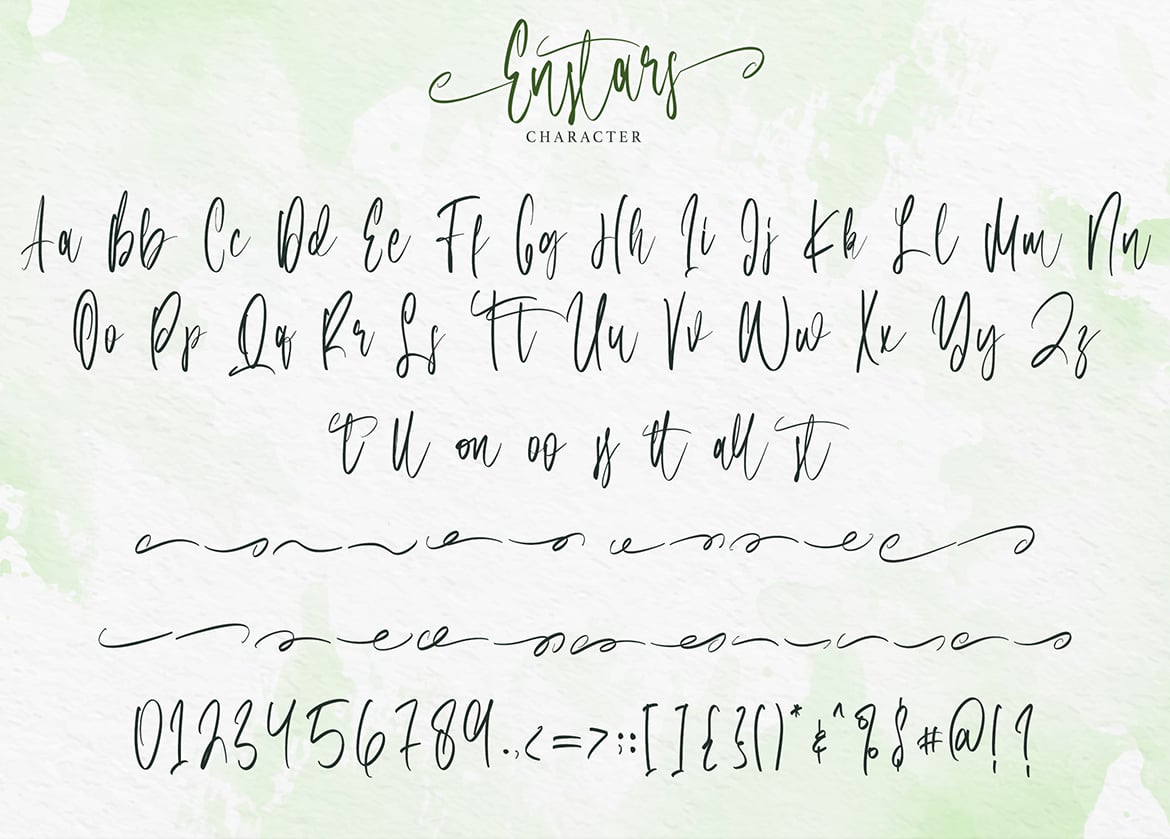 Enstars
CHARACTER
Aa Bb Cc Dd Ee Ff Gg Hh Ii Jj Kk Ll Mm Nn
Oo Pp Qq Rr Ss Tt Uu Vv Ww Xx Yy Zz
t ll on oo ss tt all st
0123456789.,<=>;:[]{}()*&^%$#@!?